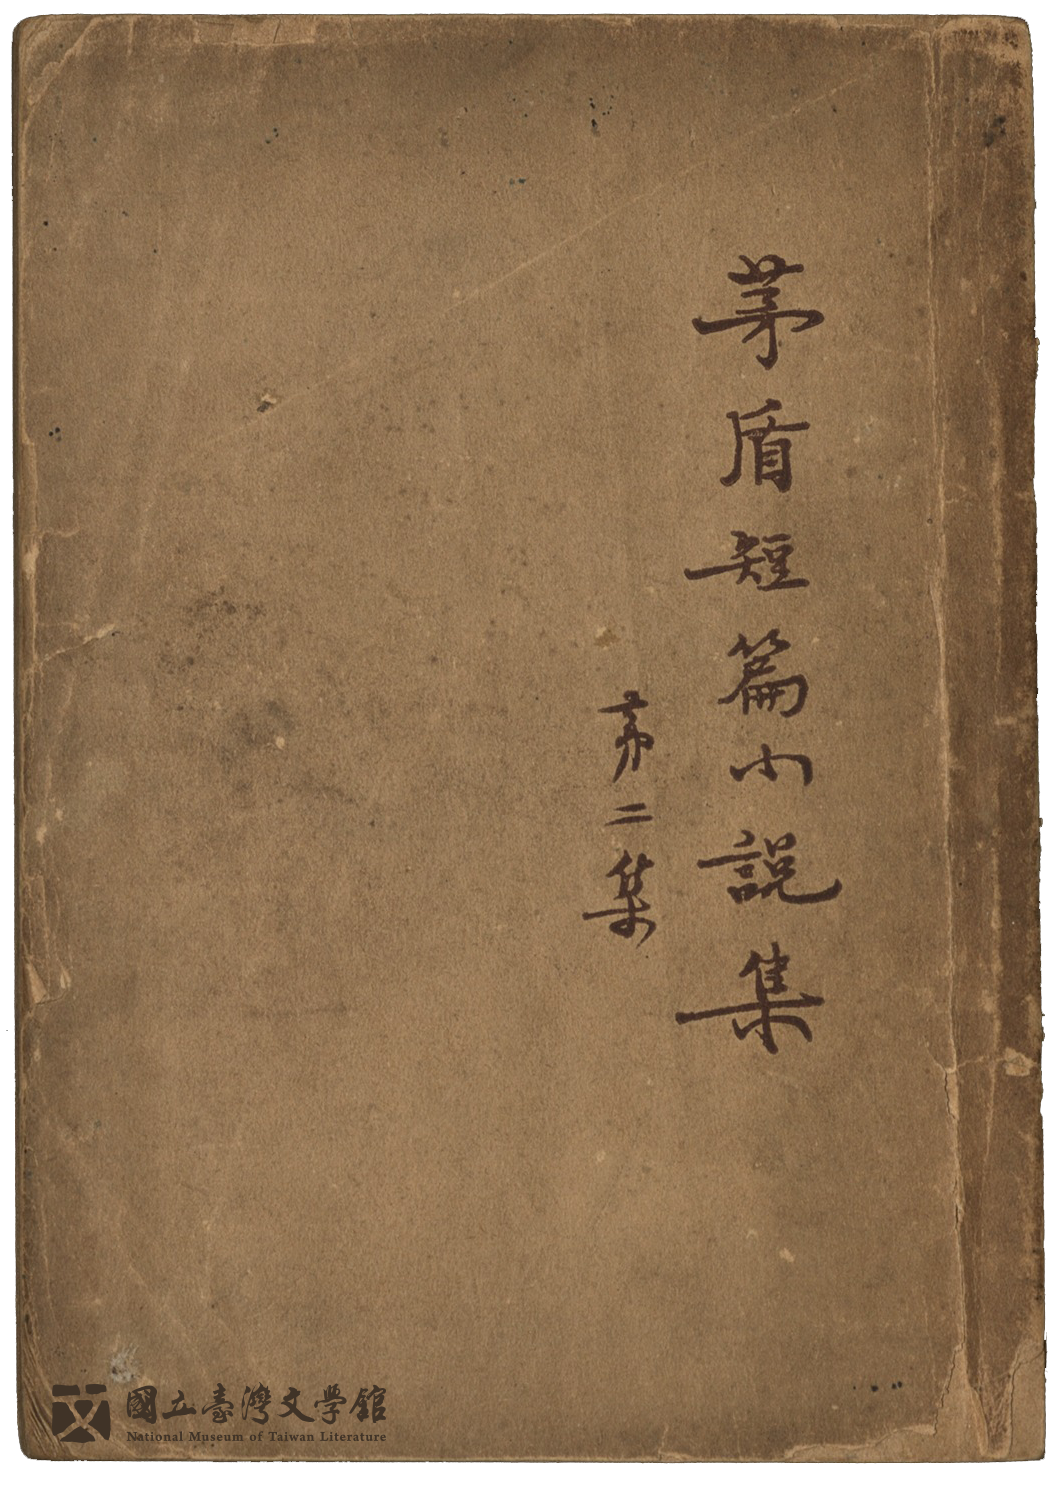 茅盾短篇小説集
第二集
國立臺灣文學館
National Museum of Taiwan Literature